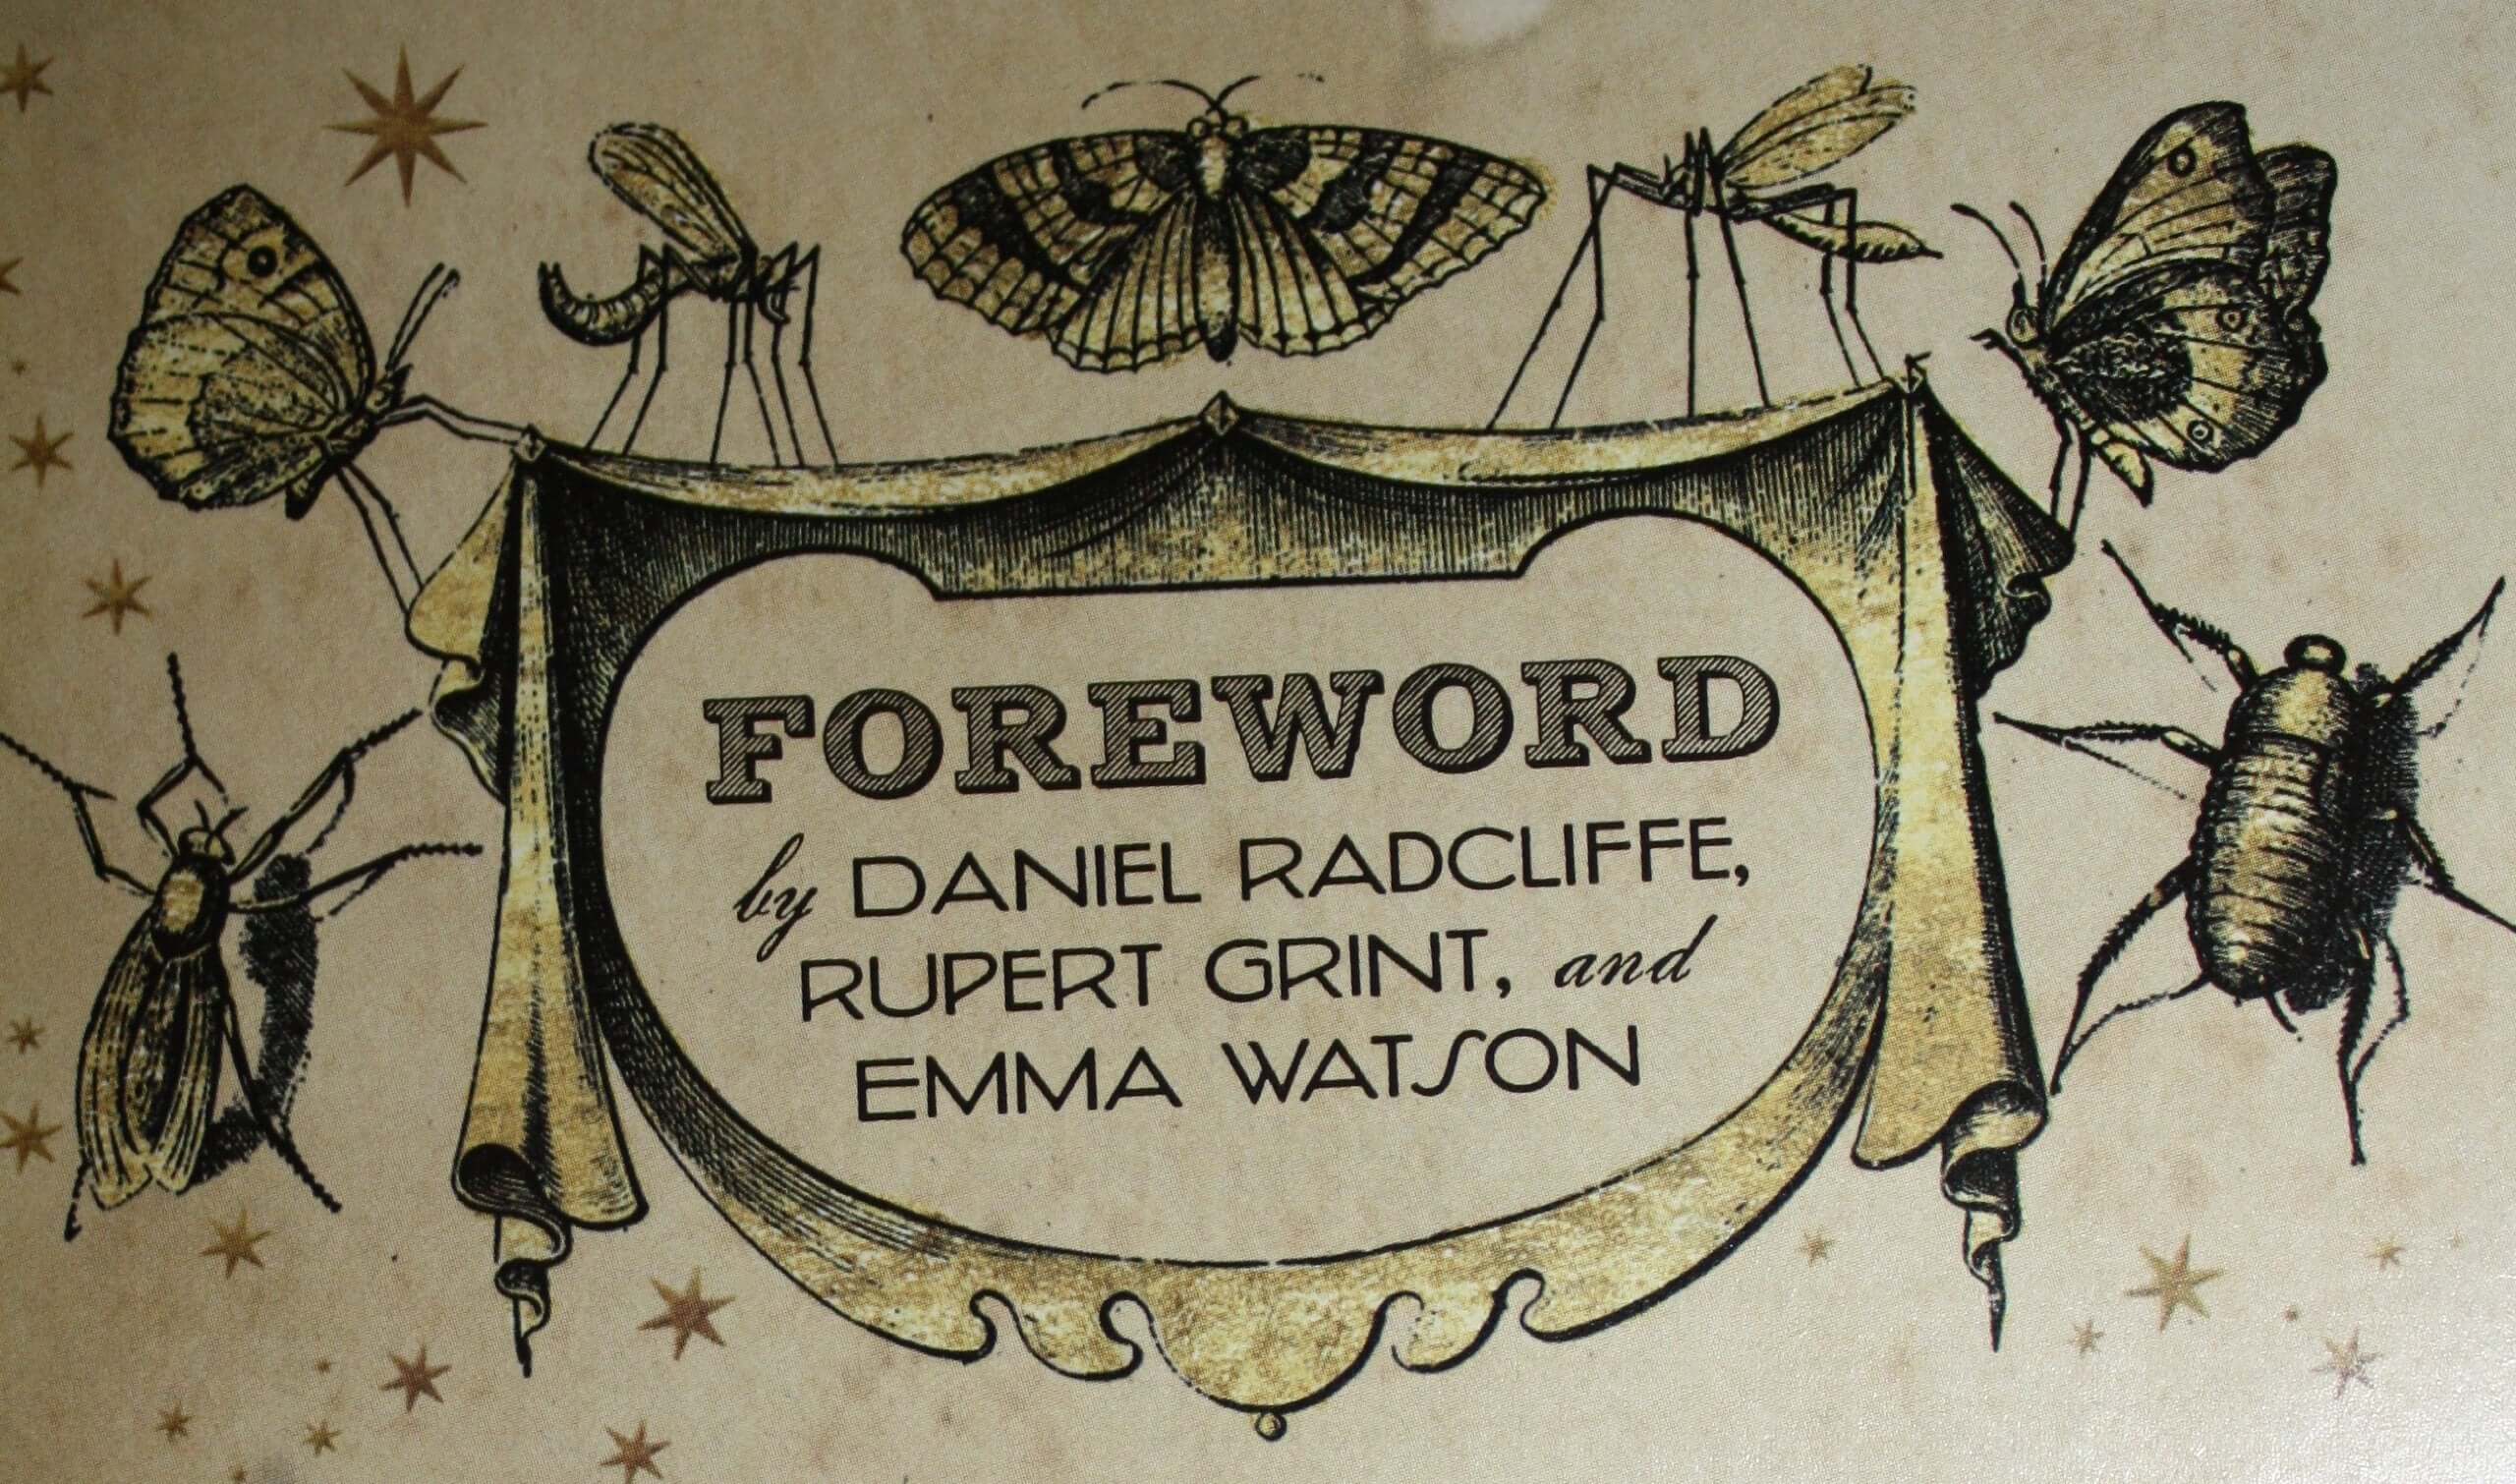 FOREWORD
by DANIEL RADCLIFFE,
RUPERT GRINT, and
EMMA WATSON